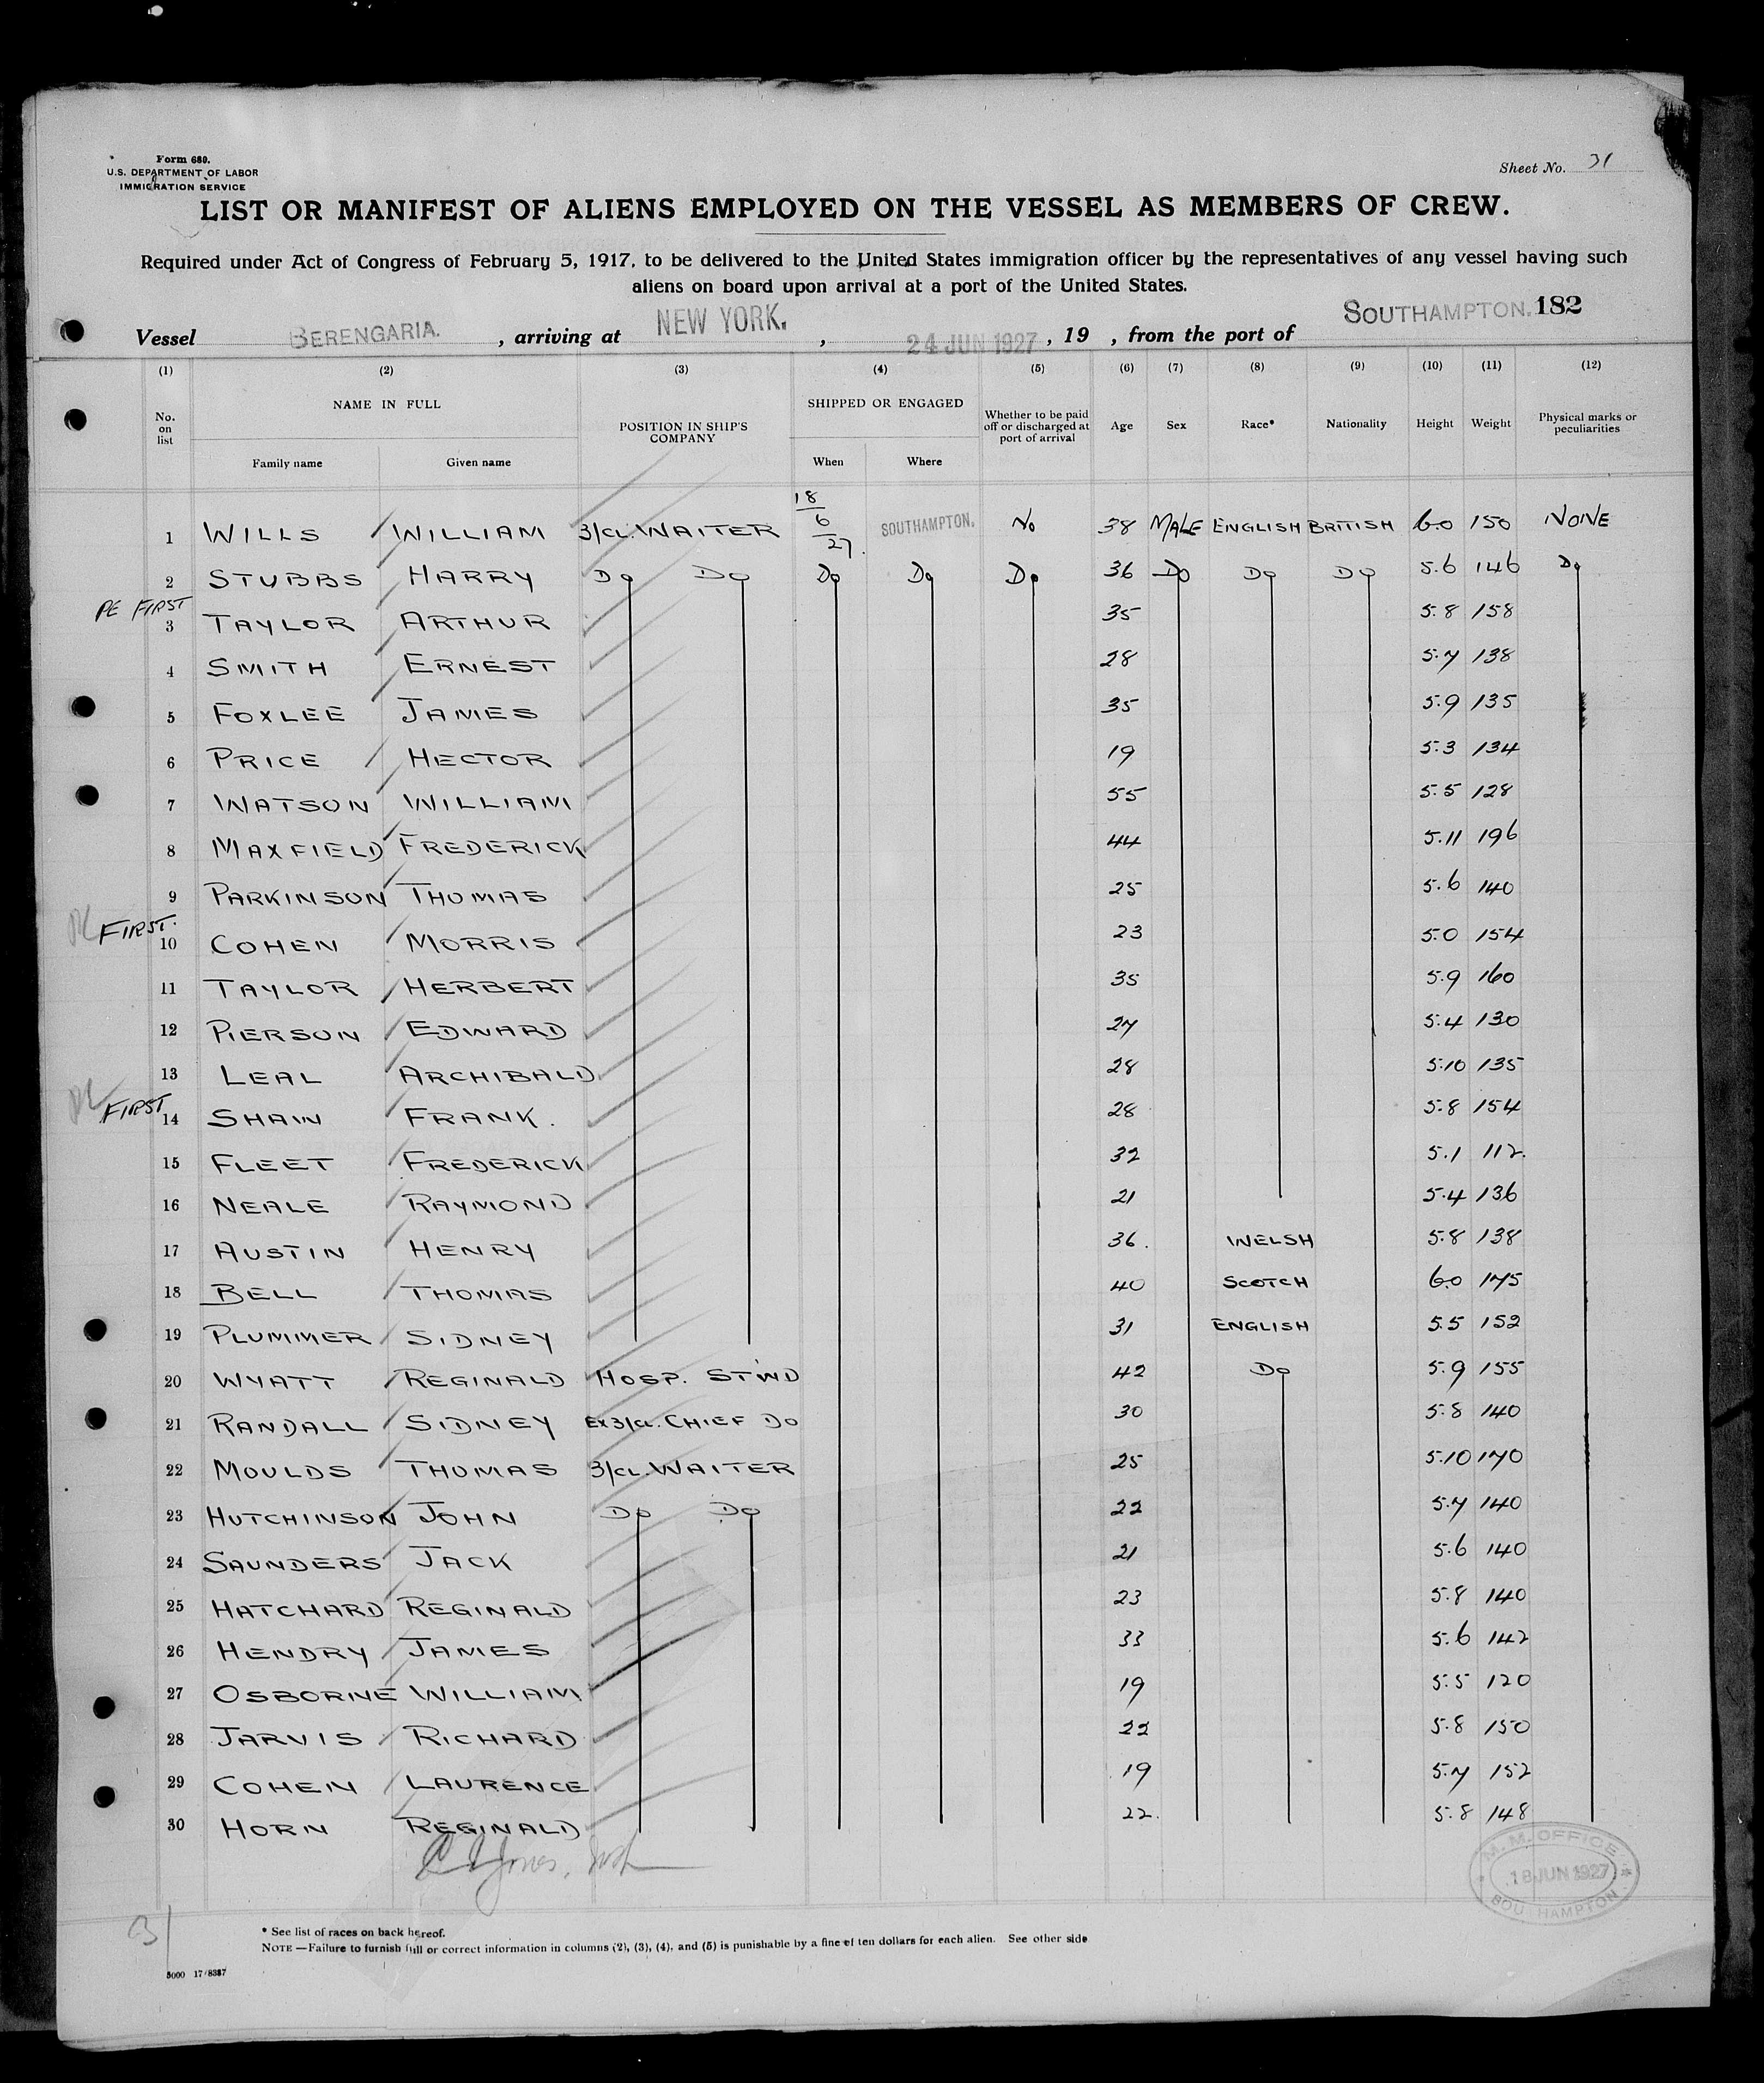 Form 680.
U.S. DEPARTMENT OF LABOR
IMMIGRATION SERVICE
Sheet No. 31
LIST OR MANIFEST OF ALIENS EMPLOYED ON THE VESSEL AS MEMBERS OF CREW.
Required under Act of Congress of February 5, 1917, to be delivered to the United States immigration officer by the representatives of any vessel having such
aliens on board upon arrival at a port of the United States.
Vessel BERENGARIA. , arriving at NEW YORK. , 24 JUN 1927 , 19 , from the port of SOUTHAMPTON. 182
(1) (2) (3) (4) (5) (6) (7) (8) (9) (10) (11) (12)
No. on list NAME IN FULL POSITION IN SHIP'S COMPANY SHIPPED OR ENGAGED Whether to be paid off or discharged at port of arrival Age Sex Race* Nationality Height Weight Physical marks or peculiarities
Family name Given name When Where
1 WILLS WILLIAM 3/CL. WAITER 18/6/27. SOUTHAMPTON. No 38 MALE ENGLISH BRITISH 6.0 150 NONE
2 STUBBS HARRY Do Do Do Do Do 36 Do Do Do 5.6 146 Do
PE FIRST
3 TAYLOR ARTHUR 35 5.8 158
4 SMITH ERNEST 28 5.7 138
5 FOXLEE JAMES 35 5.9 135
6 PRICE HECTOR 19 5.3 134
7 WATSON WILLIAM 55 5.5 128
8 MAXFIELD FREDERICK 44 5.11 196
9 PARKINSON THOMAS 25 5.6 140
FIRST.
10 COHEN MORRIS 23 5.0 154
11 TAYLOR HERBERT 35 5.9 160
12 PIERSON EDWARD 27 5.4 130
13 LEAL ARCHIBALD 28 5.10 135
FIRST
14 SHAW FRANK. 28 5.8 154
15 FLEET FREDERICK 32 5.1 112.
16 NEALE RAYMOND 21 5.4 136
17 AUSTIN HENRY 36. WELSH 5.8 138
18 BELL THOMAS 40 SCOTCH 6.0 175
19 PLUMMER SIDNEY 31 ENGLISH 5.5 152
20 WYATT REGINALD HOSP. ST'WD 42 Do 5.9 155
21 RANDALL SIDNEY Ex 3/CL. CHIEF Do 30 5.8 140
22 MOULDS THOMAS 3/CL. WAITER 25 5.10 170
23 HUTCHINSON JOHN Do Do 22 5.7 140
24 SAUNDERS JACK 21 5.6 140
25 HATCHARD REGINALD 23 5.8 140
26 HENDRY JAMES 33 5.6 142
27 OSBORNE WILLIAM 19 5.5 120
28 JARVIS RICHARD 22 5.8 150
29 COHEN LAURENCE 19 5.7 152
30 HORN REGINALD 22. 5.8 148
Jones,
M.M. OFFICE
18 JUN 1927
SOUTHAMPTON
31
* See list of races on back hereof.
NOTE —Failure to furnish full or correct information in columns (2), (3), (4), and (5) is punishable by a fine of ten dollars for each alien. See other side
5000 17/8387